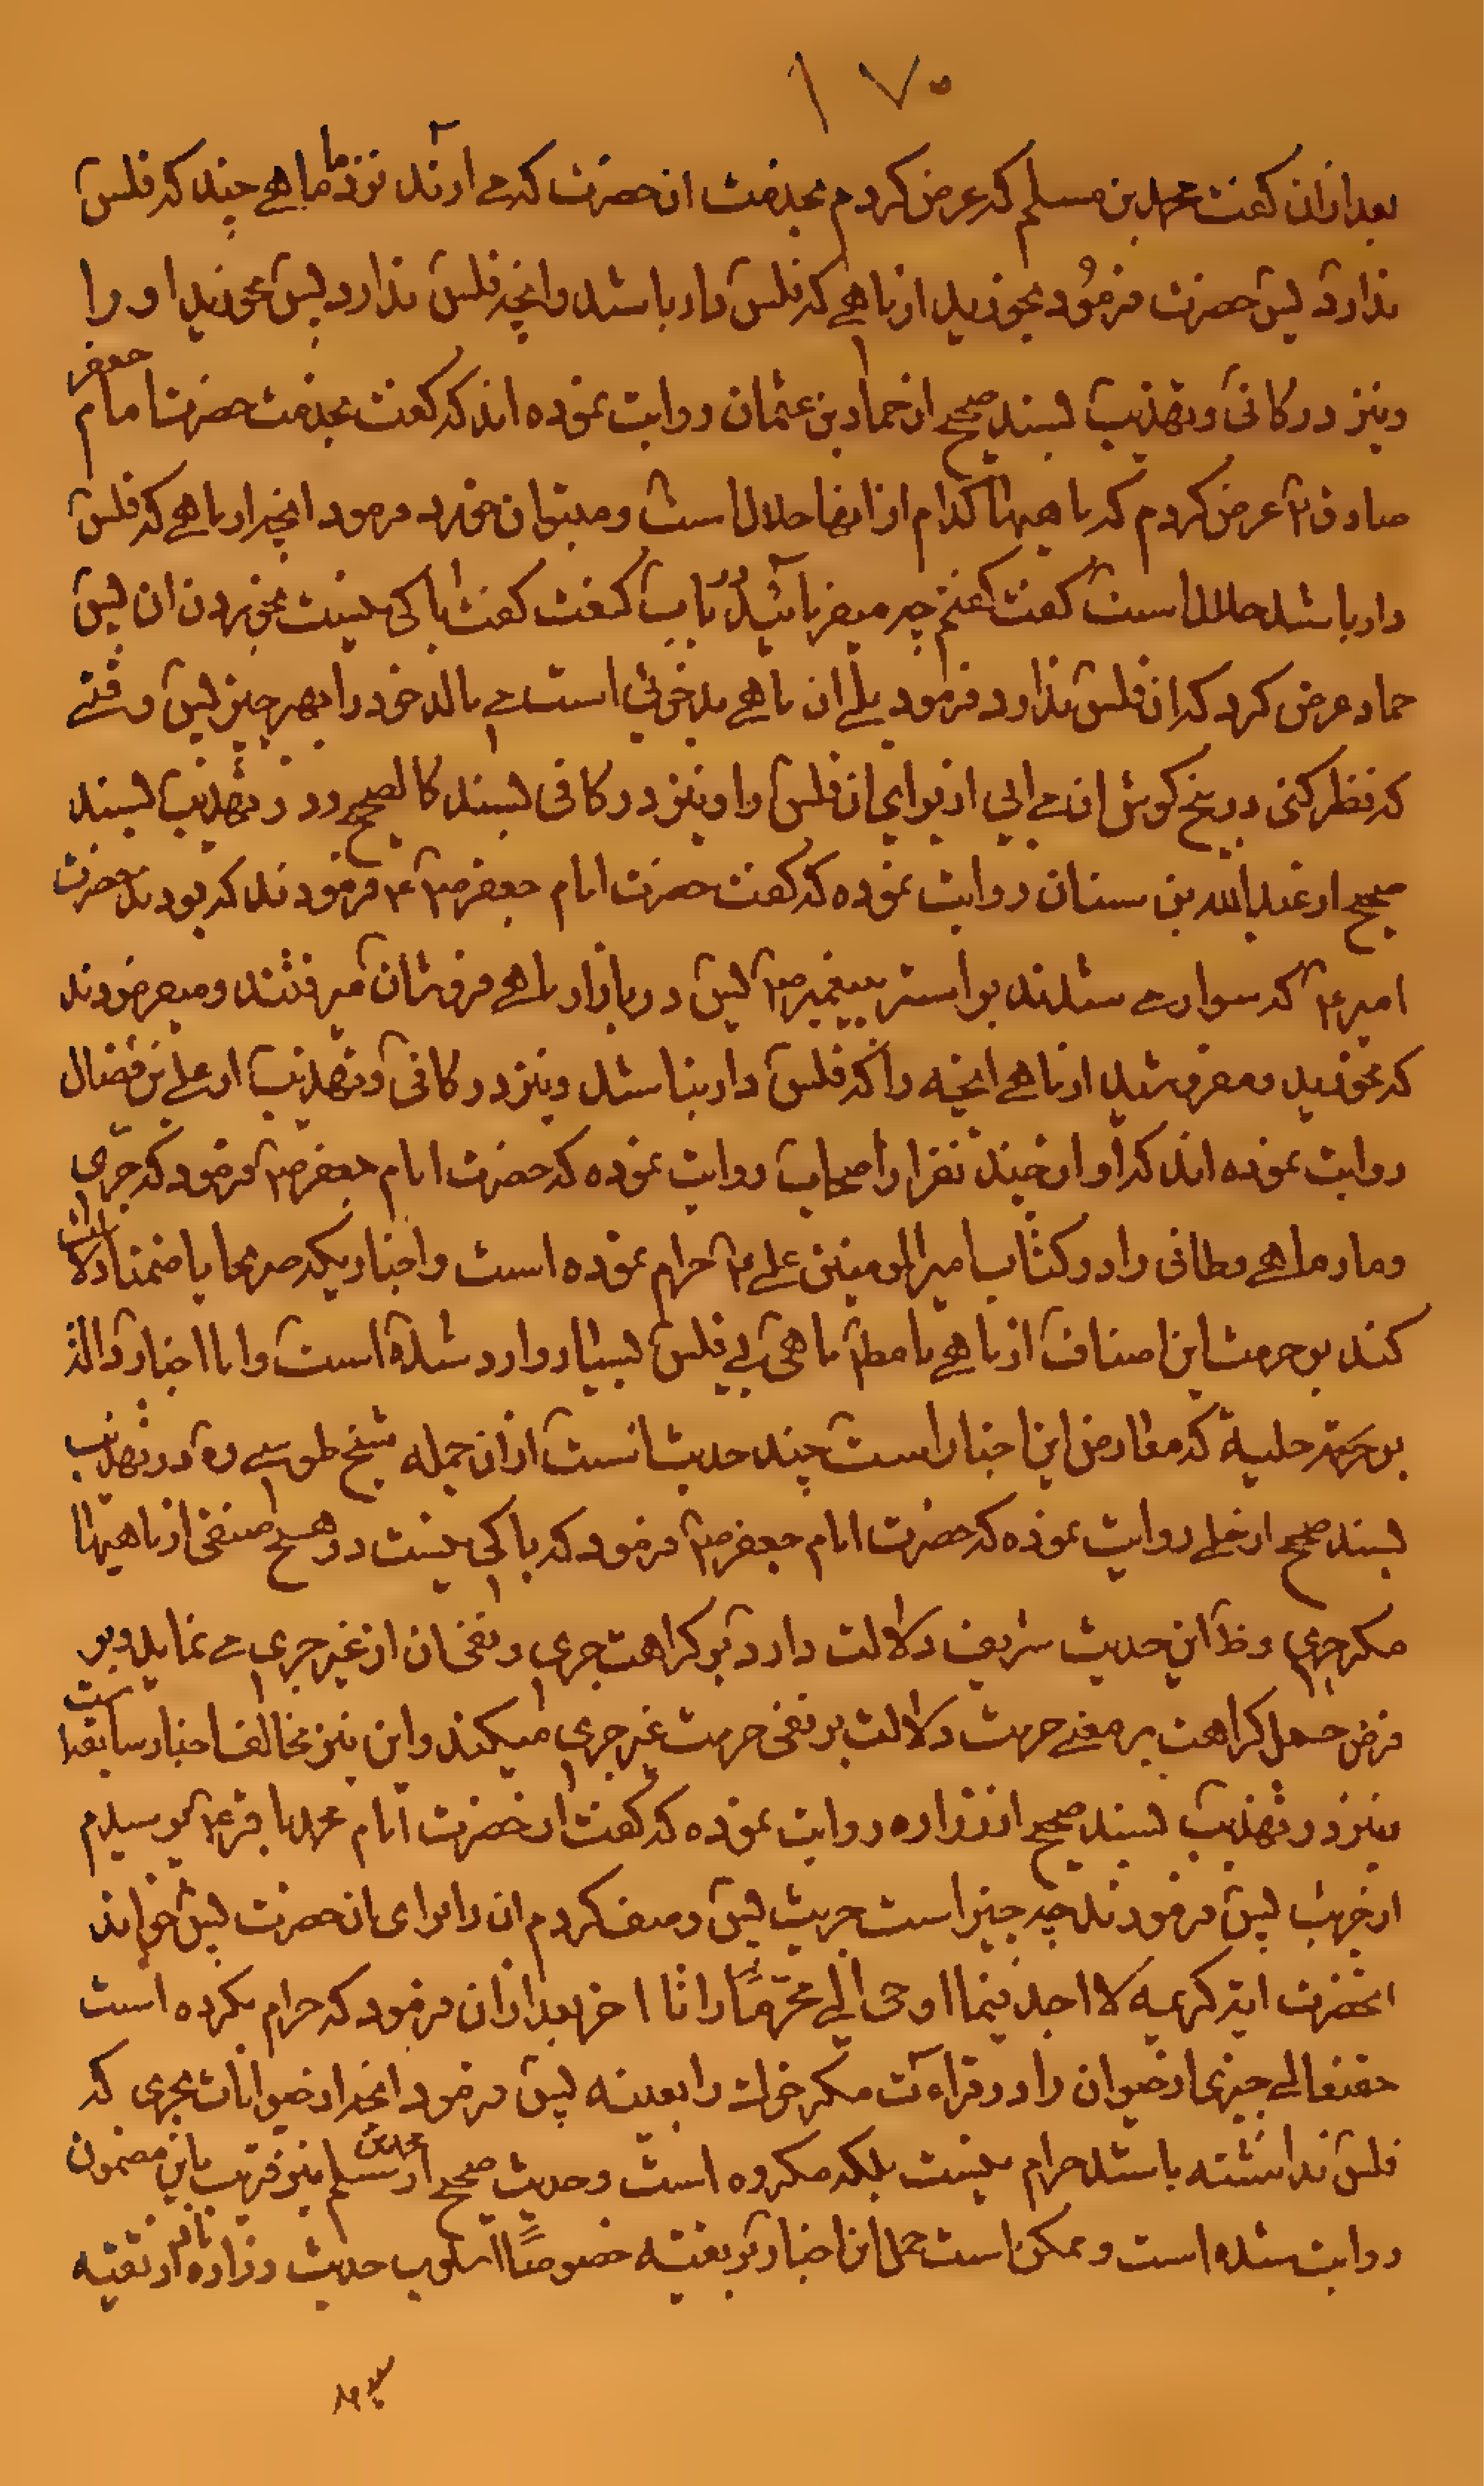 ۱۷۰
بعد ازان کفت محمد بن مسلم که عرض کردم بخدمت ان حضرت که می ارند نزد ما ماهی چند که فلس
ندارد پس حضرت فرمود بخورید از ماهی که فلس دار باشد وانچه فلس ندارد پس مخورید او را
ونیز در کافی وتهذیب بسند صحیح از حماد بن عثمان روایت نموده اند که کفت بخدمت حضرت امام جعفر
صادق ع عرض کردم که ماهیها کدام از انها حلال است ومیتوان خورد فرمود انچه از ماهی که فلس
دار باشد حلال است کفت کفتم چه میفرمائید در باب کنعت کفت باکی نیست بخوردن ان پس
حماد عرض کرد که ان فلس ندارد فرمود بلی ان ماهی بدخوئی است می مالد خود را بهر چیز پس وقتی
که نظر کنی در بیخ کوش ان می یابی از برای ان فلس را ونیز در کافی بسند کالصحیح ودر تهذیب بسند
صحیح از عبد الله بن سنان روایت نموده که کفت حضرت امام جعفر ص ع فرمودند که بودند حضرت
امیر ع که سوار می شدند بر استر پیغمبر ص پس در بازار ماهی فروشان میرفتند ومیفرمودند
که مخورید ومفروشید از ماهی انچه را که فلس دار نباشد ونیز در کافی وتهذیب از علی بن فضال
روایت نموده اند که او از چند نفر از اصحاب روایت نموده که حضرت امام جعفر ص فرمود که جری
ومار ماهی وطافی را در کتاب امیر المومنین علی ع حرام نموده است واخباریکه صریحا یا ضمنا دلالت
کند بر حرمت این اصناف از ماهی یا مطلق ماهی بی فلس بسیار وارد شده است واما اخبار دالة
بر حلیة که معارض این اخبار است چند حدیث است ازان جمله شیخ طوسی ره در تهذیب
بسند صحیح از حلبی روایت نموده که حضرت امام جعفر ص فرمود که باکی نیست در هیچ صنفی از ماهیها
مکر جری وظ این حدیث شریف دلالت دارد بر کراهت جری ونفی ان از غیر جری می نماید وبر
فرض حمل کراهت بر معنی حرمت دلالت بر نفی حرمت غیر جری میکند واین نیز مخالف اخبار سابقه است
نیز در تهذیب بسند صحیح از زراره روایت نموده که کفت از حضرت امام محمد باقر ع پرسیدم
از جریث پس فرمودند چه چیز است جریث پس وصف کردم ان را برای ان حضرت پس خواند
انحضرت ایه کریمه لا اجد فیما اوحی الی محرما را تا اخر بعد ازان فرمود که حرام نکرده است
حقتعالی چیزی از حیوان را در قراءت مکر خوک را بعینه پس فرمود انچه از حیوانات بحری که
فلس نداشته باشد حرام نیست بلکه مکروه است وحدیث صحیح از محمد بن مسلم نیز قریب باین مضمون
روایت شده است وممکن است حمل این اخبار بر تقیه خصوصا اسلوب حدیث زراره از تقیه